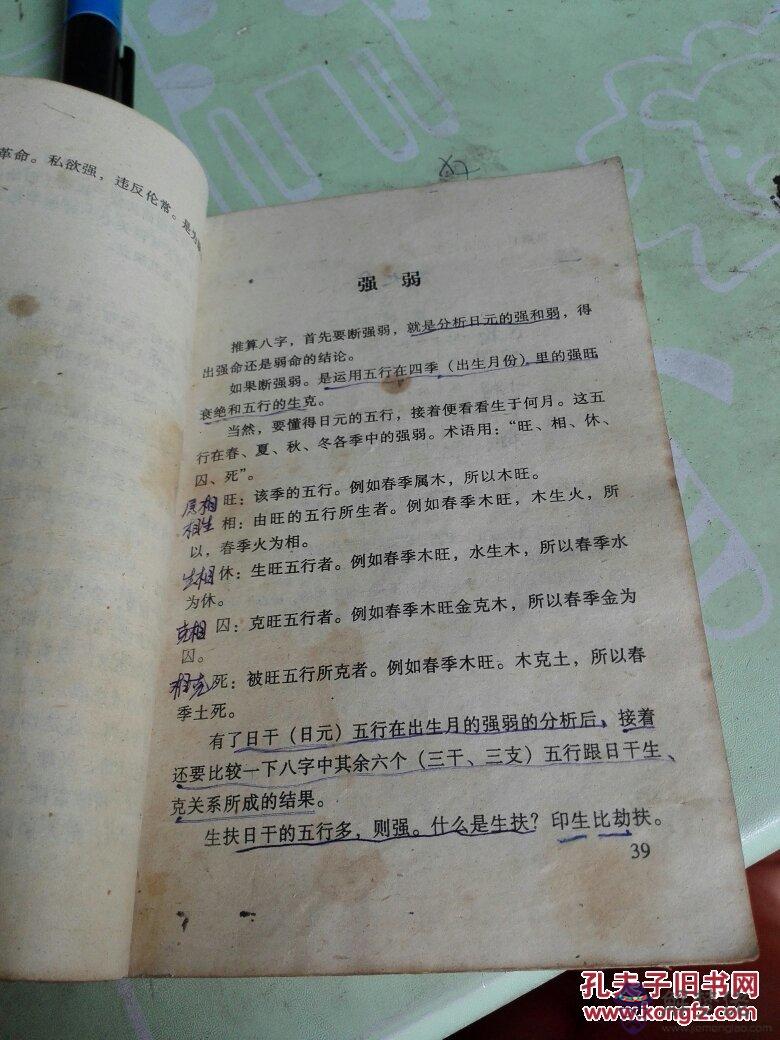 革命。私欲强，违反伦常。是
强 弱
推算八字，首先要断强弱，就是分析日元的强和弱，得
出强命还是弱命的结论。
如果断强弱。是运用五行在四季（出生月份）里的强旺
衰绝和五行的生克。
当然，要懂得日元的五行，接着便看看生于何月。这五
行在春、夏、秋、冬各季中的强弱。术语用：“旺、相、休、
囚、死”。
旺：该季的五行。例如春季属木，所以木旺。
相生 相：由旺的五行所生者。例如春季木旺，木生火，所
以，春季火为相。
生相 休：生旺五行者。例如春季木旺，水生木，所以春季水
为休。
克相 囚：克旺五行者。例如春季木旺金克木，所以春季金为
囚。
相克 死：被旺五行所克者。例如春季木旺。木克土，所以春
季土死。
有了日干（日元）五行在出生月的强弱的分析后，接着
还要比较一下八字中其余六个（三干、三支）五行跟日干生、
克关系所成的结果。
生扶日干的五行多，则强。什么是生扶？印生比劫扶。
39
孔夫子旧书网
www.kongfz.com